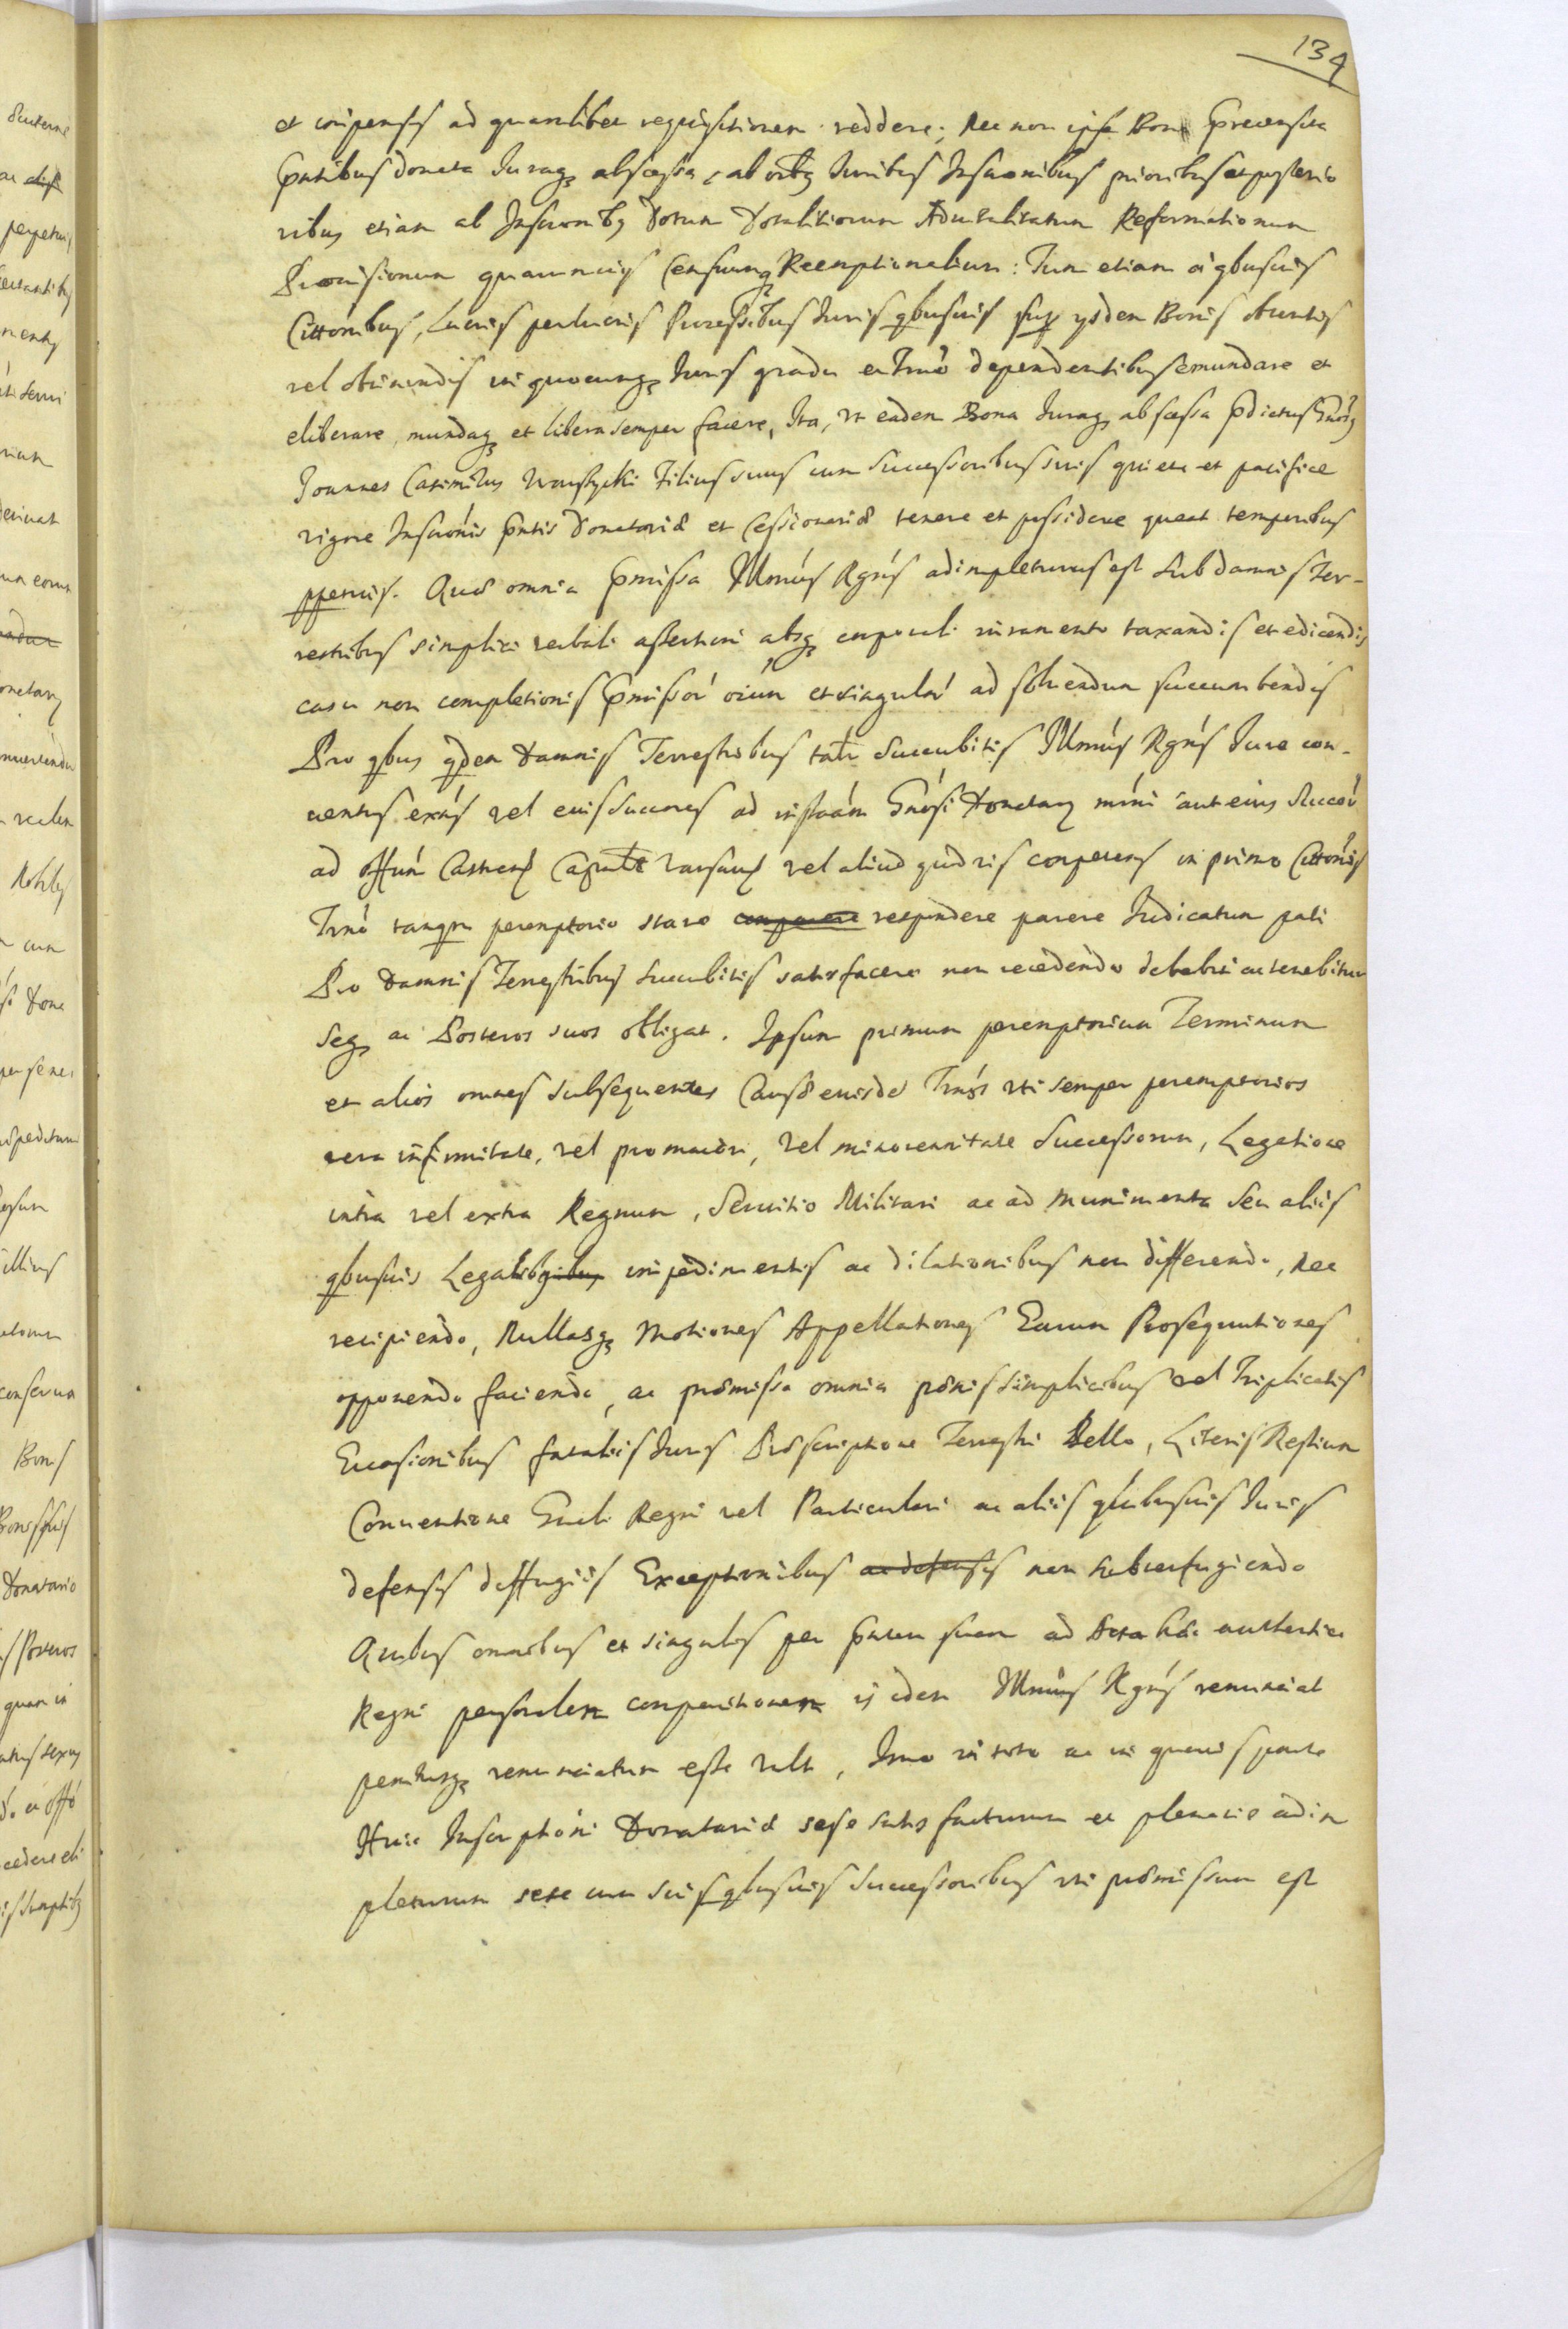 134
et impensis ad quamlibet requisitionem reddere; Nec non ipsa Bona precensita
pntibus donata Juraq abscessa, ab oibq Juribus Inscronibus prioribus et posterio
ribus etiam ab Inscronibq Dotum Dotalitiorum Aduitalitatum Reformationum
Prouisionum quarumuis Censuumq Reemptionalium: Tum etiam a qbusuis
Cittonibus, Lucris perlucris Processibus Juris qbusuis sup ysdem Bonis obtentis
vel obtinendis in quocunq Juris gradu et Tmo dependentibus emundare et
eliberare, mundaq et libera semper facere, Ita, vt eadem Bona Juraq abscessa pdictus Gnosq
Joannes Casimirus Warszycki Filius suus cum Successoribus suis quiete et pacifice
vigore Inscronis pntis Donatoriæ et Cessionariæ tenere et possidere queat temporibus
ppetuis. Quæ omnia pmissa Illmus Rgns adimpleturus est sub damnis Ter-
restribus simplici verbali assertioni absq corporali iuramento taxandis et edicendis
casu non completionis pmissor oium et singulor ad solvendum succumbendis
Pro qbus qdem Damnis Terrestribus talr Succubitis Illmus Rgns Jure con-
uentus exns vel eius succres ad instaam Gnosi Donatarq mni aut eius Succor
ad Offm Castren Capnle Varsauq vel aliud quduis competens in primo Cittonis
Tmo tanqm peremptorio stare comparere respondere parere Iudicatum pati
Pro Damnis Terrestribus succubitis satisfacere non recedendo debebit ac tenebitur
Seq ac Posteros suos obligat. Ipsum primum peremptorium Terminum
et alios omnes subsequentes Causæ eiusde Tmos vti semper peremptorios
vera infirmitate, vel pro maiori, vel minorennitate Successorum, Legatione
intra vel extra Regnum, Seruitio Militari ac ad munimenta seu aliis
qbusuis Legalibus impedimentis ac dilationibus non differendo, nec
recipiendo, Nullasq Motiones Appellationes Earum Prosequutiones
opponendo faciendo, ac præmissa omnia pænis simplicibus vel Triplicatis
Euasionibus fataliis Juris Præscriptione Terrestri Bello, Literis Restium
Conuentione Gnali Regni vel Particulari ac aliis quibusuis Juris
defensis diffugiis Exceptionibus ac defensis non subterfugiendo
Quibus omnibus et singulis per pntem suam ad Acta hæc authentica
Regni personalem comparitionem is idem Illmus Rgns renunciat
penitusq renunciatum esse vult, Imo in toto ac in quauis parte
Huic Inscriptioni Donatoriæ sese satisfacturum et plenarie adim
pleturum sese cum suis qbusuis Successoribus vti præmissum est